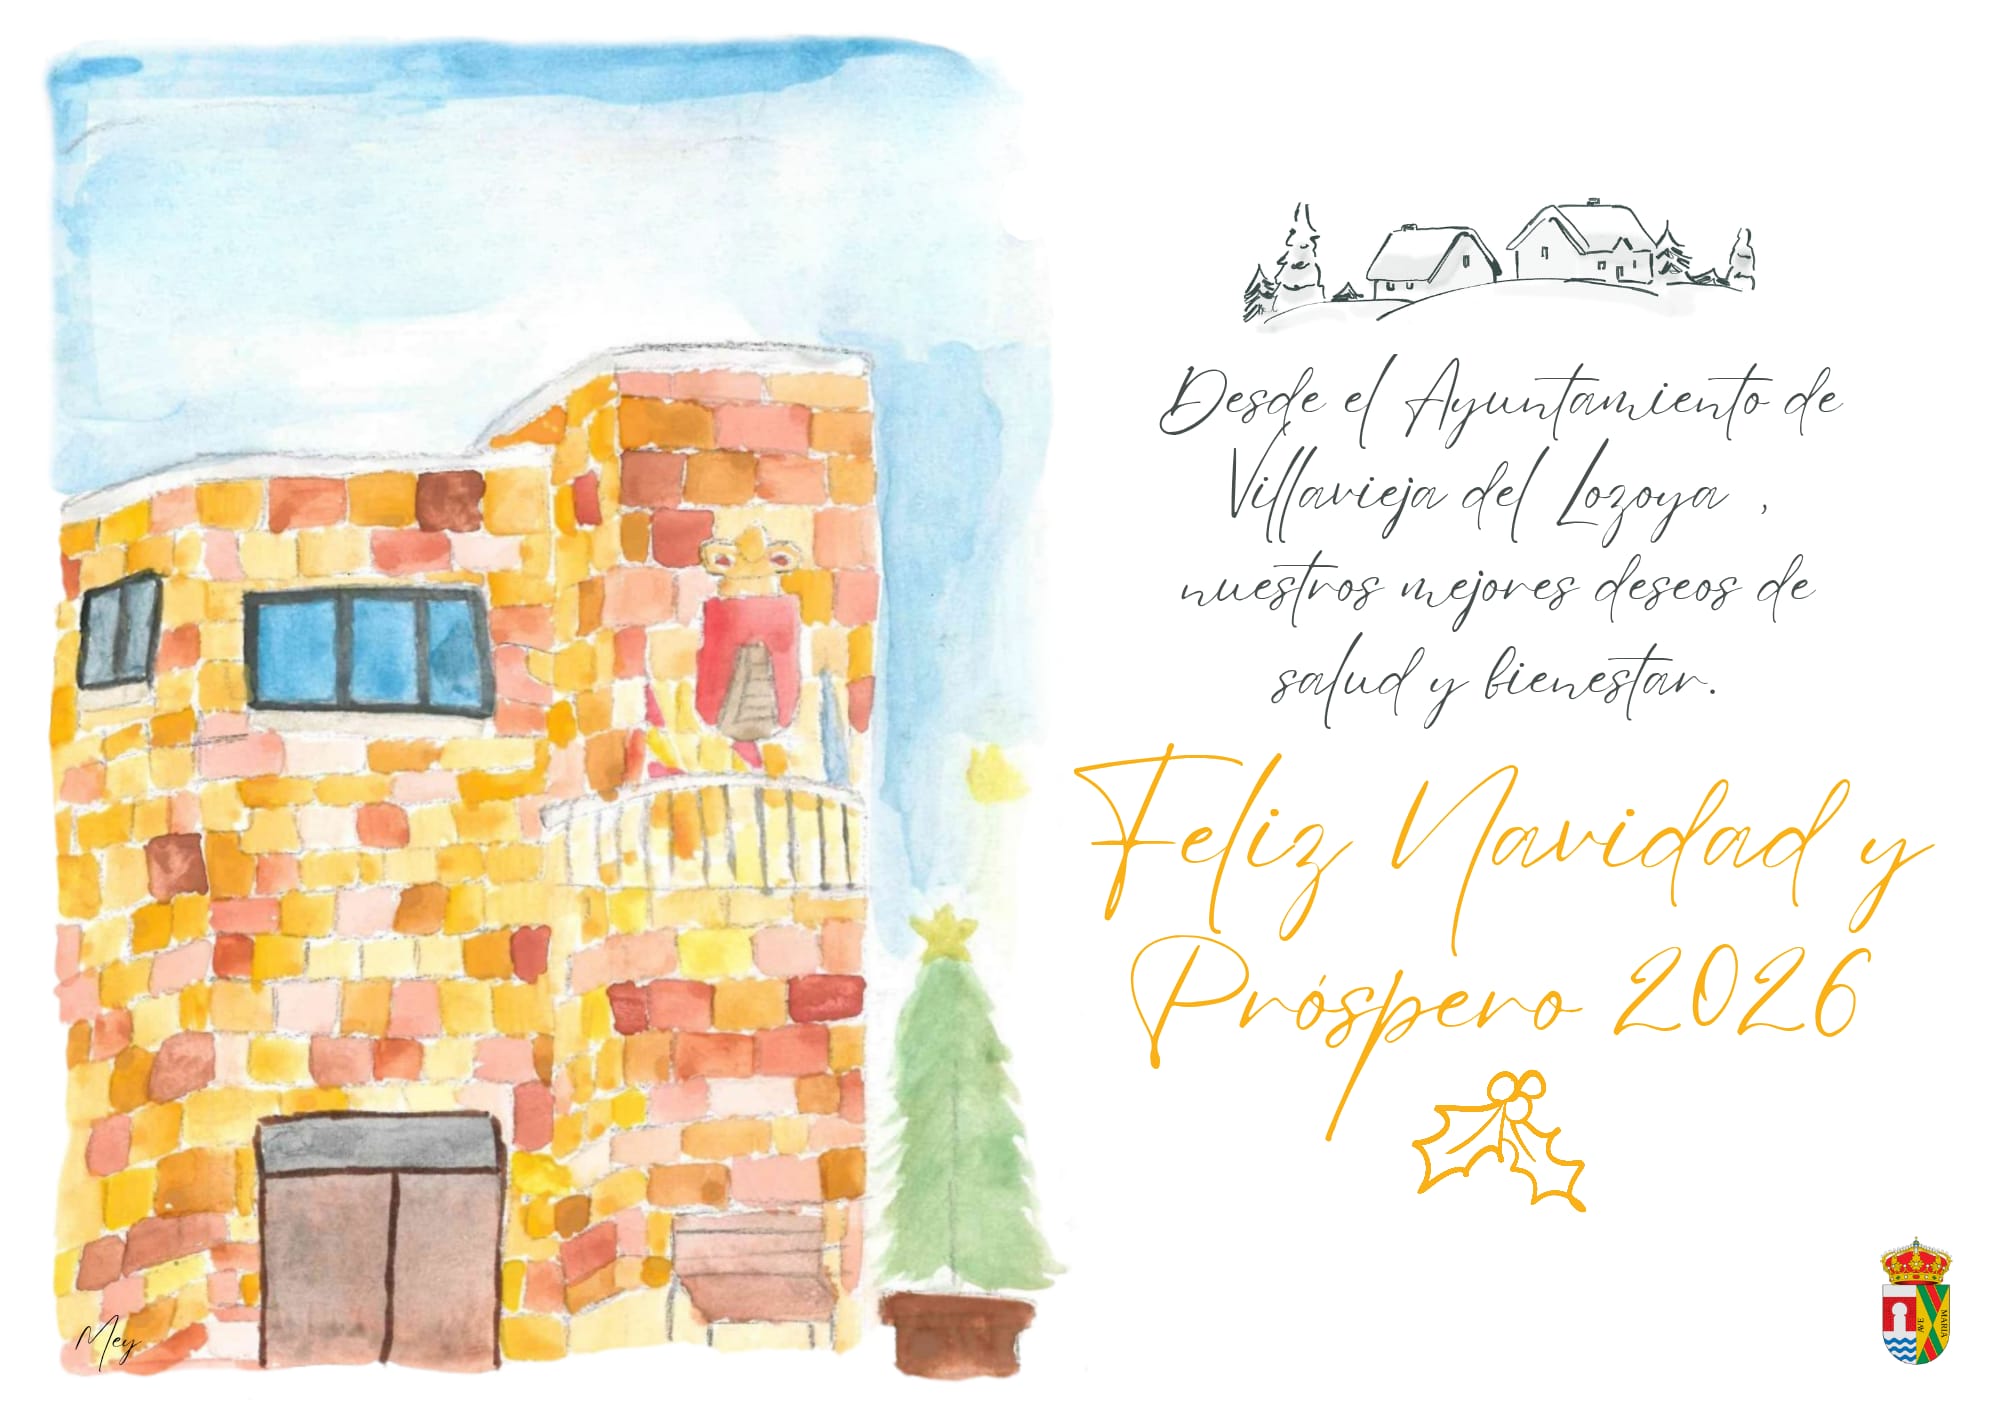 Desde el Ayuntamiento de
Villavieja del Lozoya ,
nuestros mejores deseos de
salud y bienestar.
Feliz Navidad y
Próspero 2026
Mey
AVE
MARIA